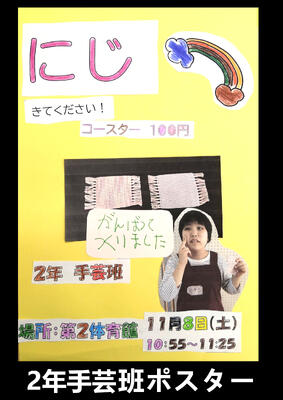 にじ
きてください！
コースター 100円
がんばって
メりました
2年 手芸班
11月8日(土)
場所:第2体育館
10:55～11:25
2年手芸班ポスター